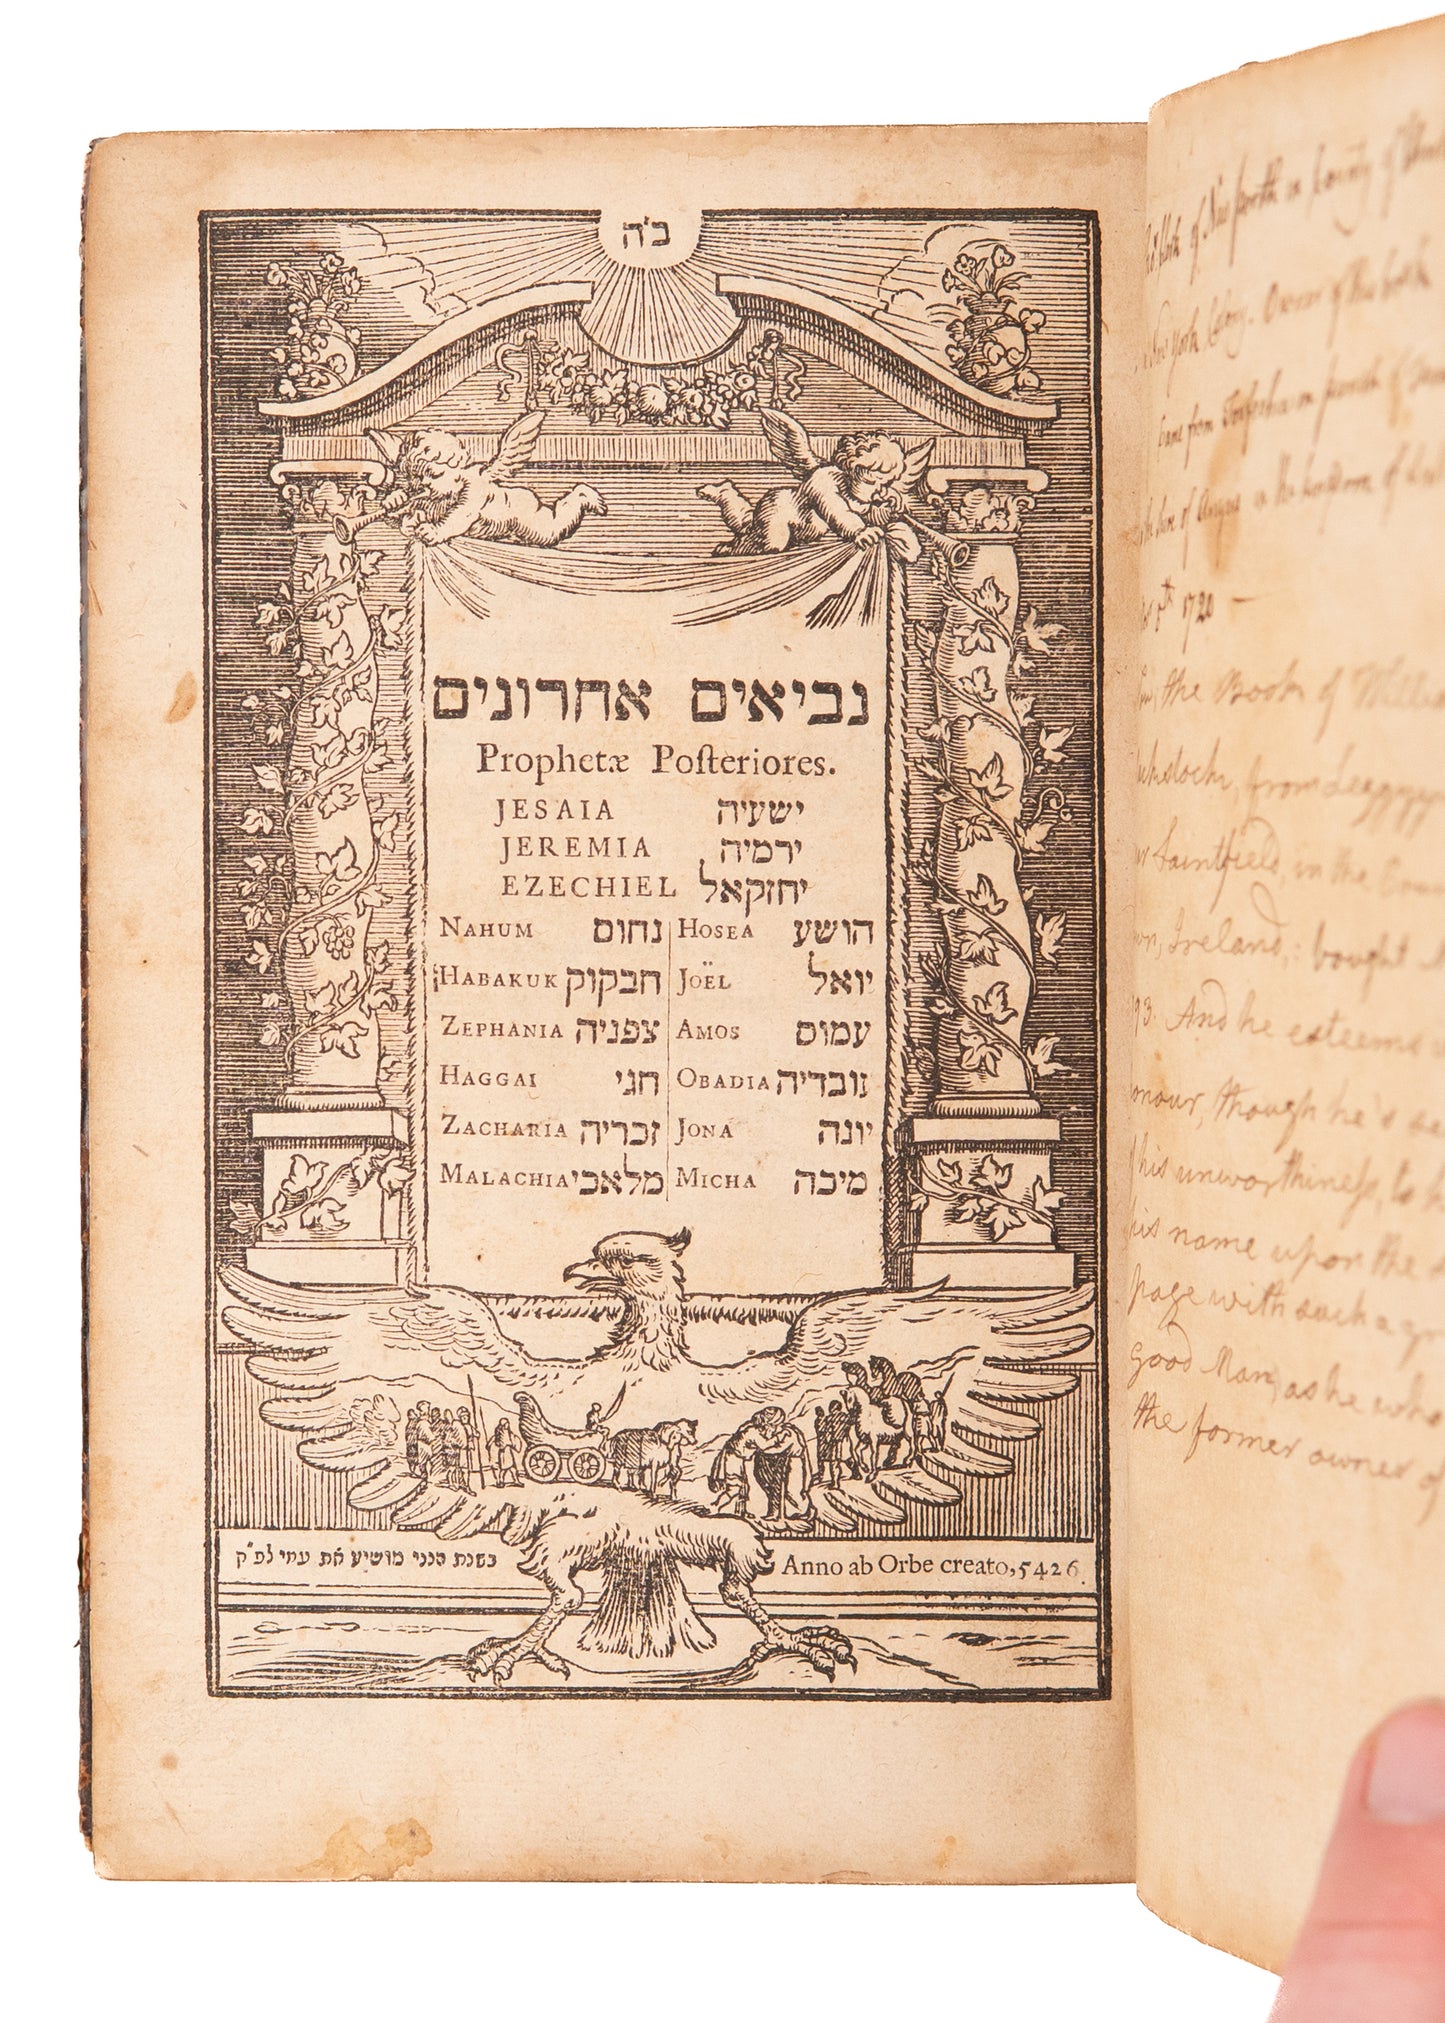 ב'ה
נביאים אחרונים
Prophetæ Poſteriores.
JESAIA ישעיה
JEREMIA ירמיה
EZECHIEL יחזקאל
NAHUM נחום HOSEA הושע
HABAKUK חבקוק JOËL יואל
ZEPHANIA צפניה AMOS עמוס
HAGGAI חגי OBADIA עובדיה
ZACHARIA זכריה JONA יונה
MALACHIA מלאכי MICHA מיכה
בשנת הנני מושיע את עמי לפ"ק
Anno ab Orbe creato, 5426.
of in County of
New York Owner of this book
Came from in parish of
of Angus in the kingdom of
1720 —
the Book of
from
Saintfield, in the
Ireland,: bought
93. And he esteems
honour, though he's
his unworthineſs, to
his name upon the
page with such a
Good Man, as he who
the former owner of